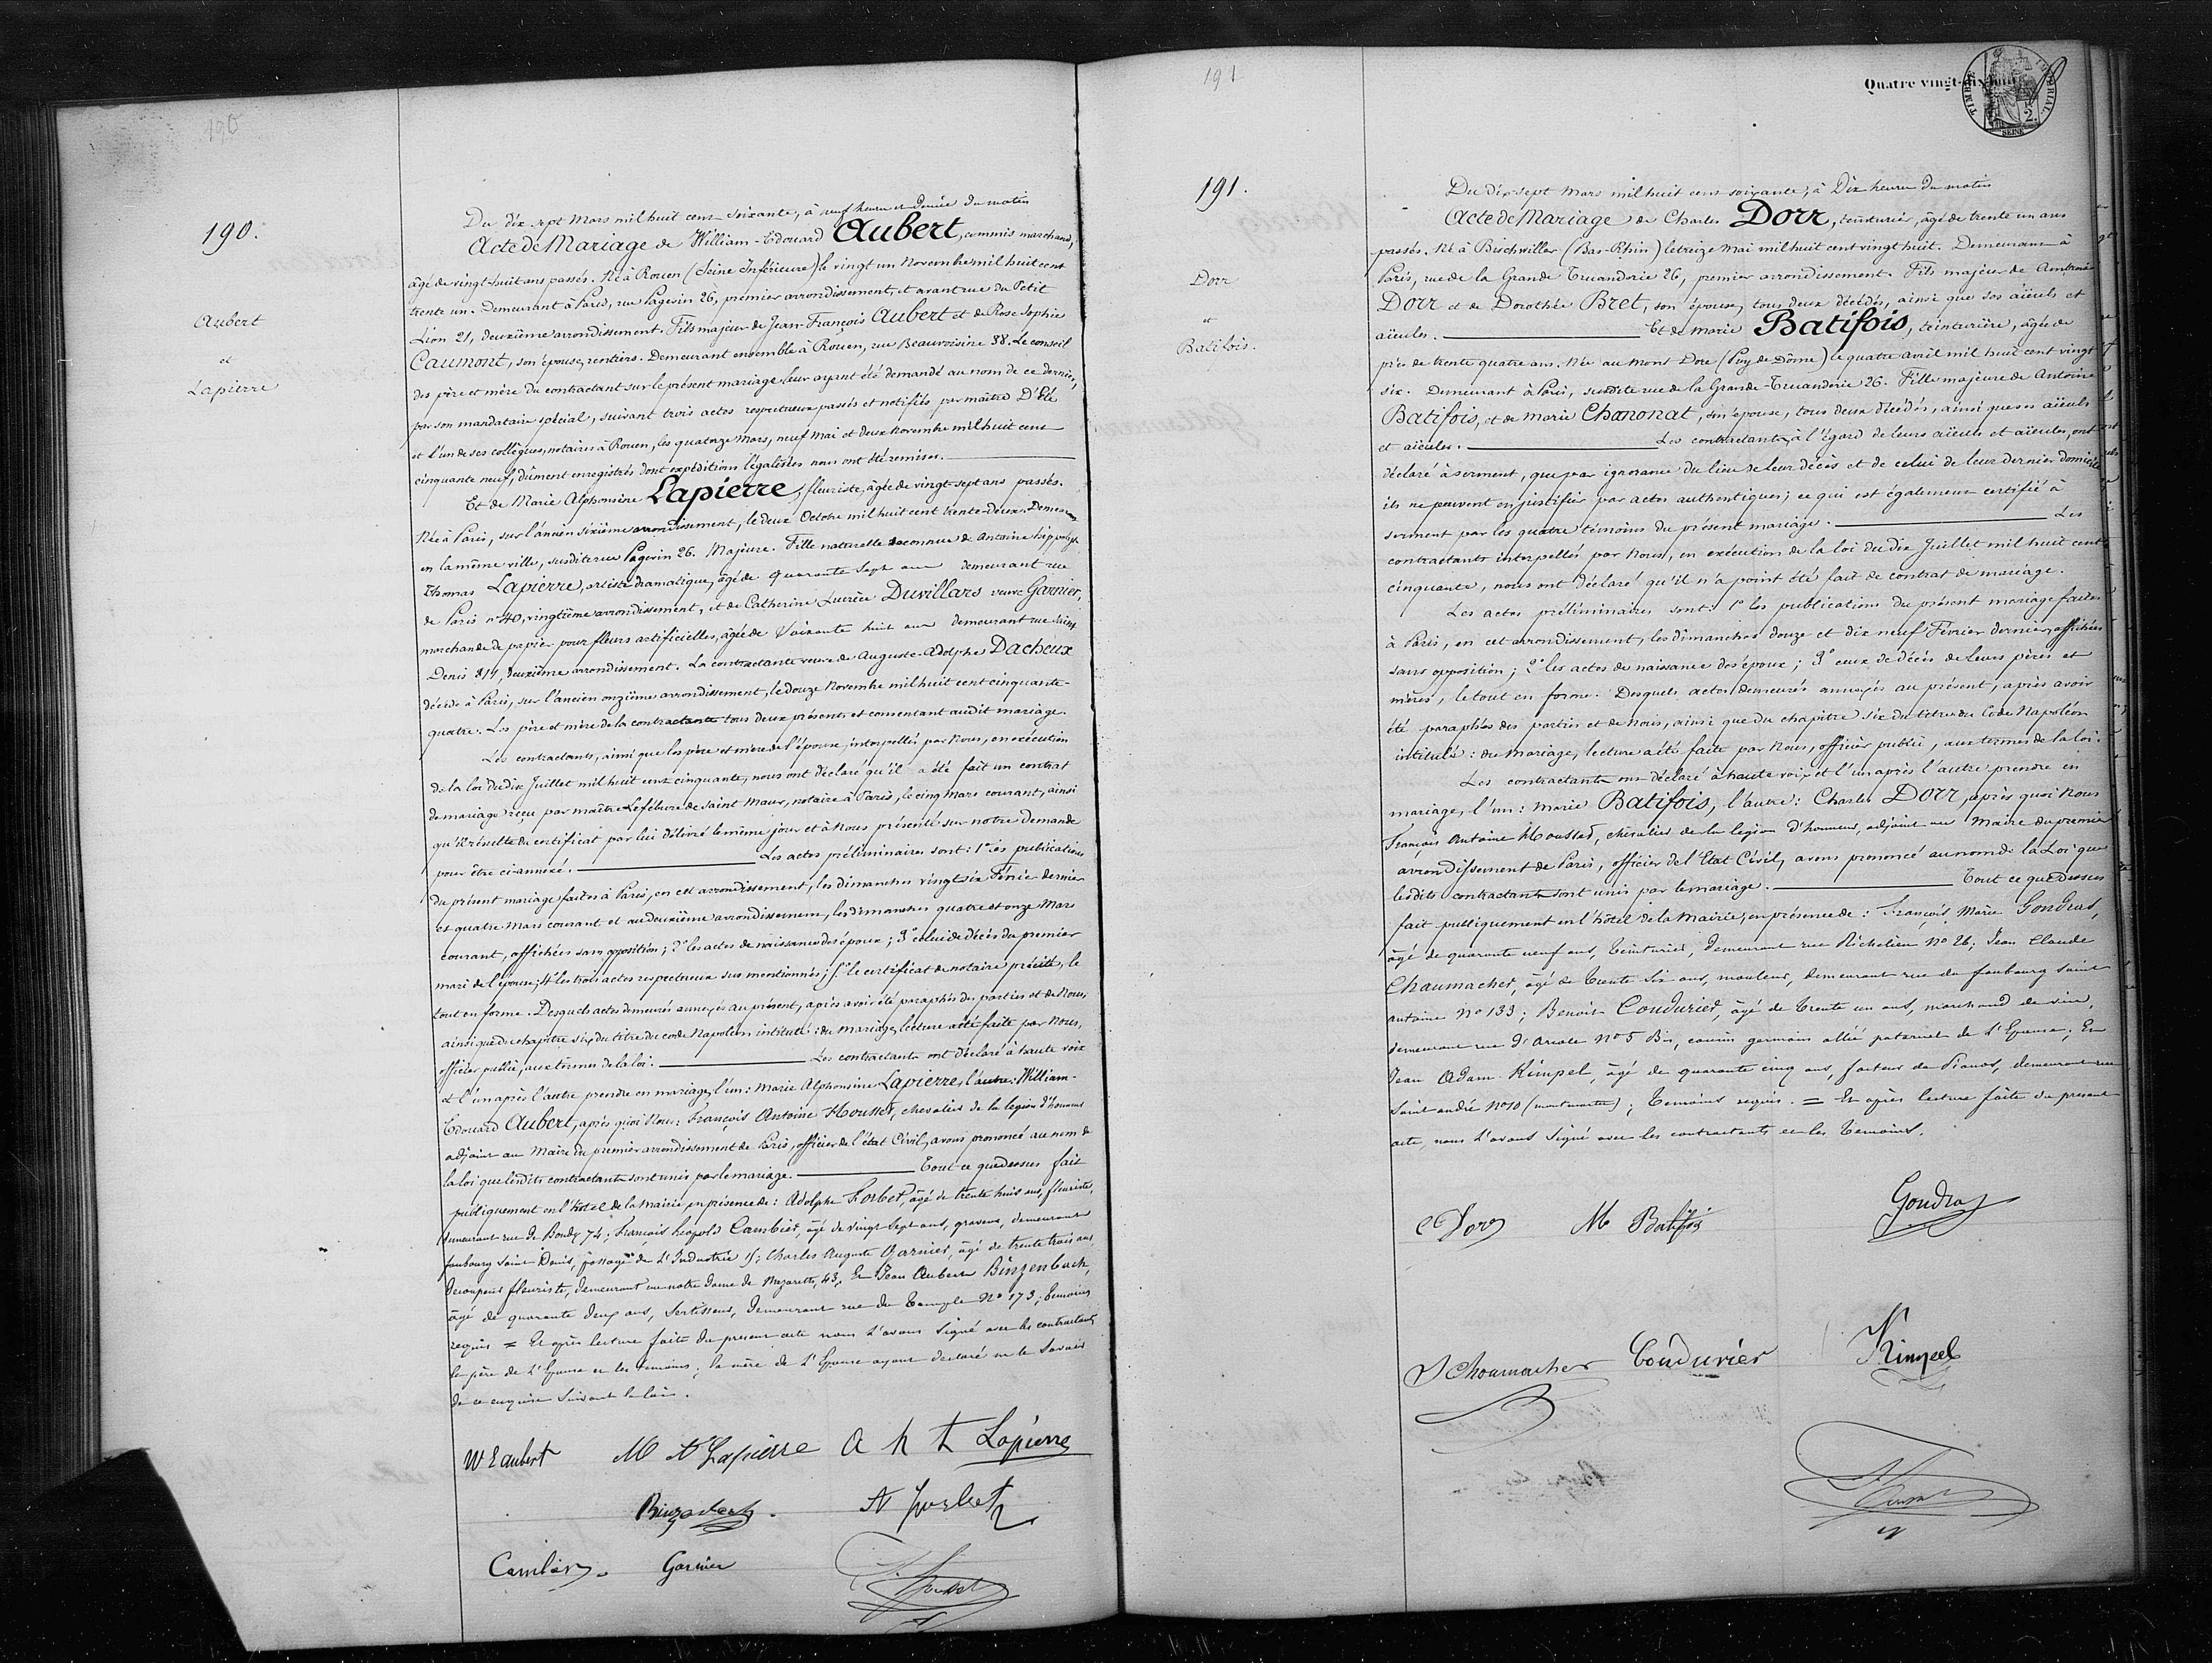 190
190.
Aubert
et
Lapierre
Du dix sept Mars mil huit cent soixante, à neuf heures et demie du matin
Acte de Mariage de William-Edouard Aubert, commis marchand,
âgé de vingt-huit ans passés. Né à Rouen (Seine Inférieure) le vingt un Novembre mil huit cent
trente un. Demeurant à Paris, rue Pagevin 26, premier arrondissement, et avant rue du Petit
Lion 21, deuxième arrondissement. Fils majeur de Jean-François Aubert et de Rose Sophie
Caumont, son épouse, rentiers. Demeurant ensemble à Rouen, rue Beauvoisine 38. Le conseil
des père et mère du contractant sur le présent mariage leur ayant été demandé au nom de ce dernier,
par son mandataire spécial, suivant trois actes respectueux passés et notifiés par maître D'Été
et l'un de ses collègues, notaires à Rouen, les quatorze Mars, neuf Mai et deux Novembre mil huit cent
cinquante neuf, dûment enregistrés dont expéditions légalisées nous ont été remises.
Et de Marie Alphonsine Lapierre, fleuriste, âgée de vingt-sept ans passés.
Née à Paris, sur l'ancien sixième arrondissement, le deux Octobre mil huit cent trente-deux. Demeurant
en la même ville, susdite rue Pagevin 26. Majeure. Fille naturelle reconnue de Antoine hippolyte
Thomas Lapierre, artiste dramatique, âgé de quarante sept ans demeurant rue
de Paris n° 40, vingtième arrondissement, et de Catherine Lucrèce Duvillars veuve Garnier,
marchande de papier pour fleurs artificielles, âgée de soixante huit ans demeurant rue Saint
Denis 317, deuxième arrondissement. La contractante veuve de Auguste-Adolphe Dacheux
décédé à Paris, sur l'ancien onzième arrondissement, le douze Novembre mil huit cent cinquante-
quatre. Les père et mère de la contractante tous deux présents et consentant audit mariage.
Les contractants, ainsi que les père et mère de l'épouse, interpellés par Nous, en exécution
de la loi du dix Juillet mil huit cent cinquante, nous ont déclaré qu'il a été fait un contrat
de mariage reçu par maître Lefébure de Saint Maur, notaire à Paris, le cinq Mars courant, ainsi
qu'il résulte du certificat par lui délivré le même jour et à Nous présenté sur notre demande
pour être ci-annexé. Les actes préliminaires sont: 1° les publications
du présent mariage faites à Paris, en cet arrondissement, les dimanches vingt six Février dernier
et quatre Mars courant et au deuxième arrondissement, les dimanches quatre et onze Mars
courant, affichées sans opposition; 2° les actes de naissance des époux; 3° celui de décès du premier
mari de l'épouse; 4° les trois actes respectueux sus mentionnés; 5° le certificat de notaire précité, le
tout en forme. Desquels actes demeurés annexés au présent, après avoir été paraphés des parties et de Nous,
ainsi que du chapitre six du titre du code Napoléon intitulé: du Mariage, lecture a été faite par Nous,
officier public, aux termes de la loi. Les contractants ont déclaré à haute voix
et l'un après l'autre prendre en mariage, l'un: Marie Alphonsine Lapierre, l'autre: William-
Edouard Aubert, après quoi Nous: François Antoine Housset, chevalier de la légion d'honneur
adjoint au Maire du premier arrondissement de Paris, officier de l'état Civil, avons prononcé au nom de
la loi que lesdits contractants sont unis par le mariage. Tout ce que dessus fait
publiquement en l'hôtel de la Mairie, en présence de: Adolphe Forbet, âgé de trente huit ans, fleuriste,
demeurant rue de Bondy 74; François Léopold Cambier, âgé de vingt sept ans, graveur, demeurant
faubourg Saint Denis, passage de L'Industrie 15; Charles Auguste Garnier, âgé de trente trois ans
découpeur fleuriste, demeurant rue notre Dame de Nazareth, 43, Et Jean Aubert Binzenbach,
âgé de quarante deux ans, sertisseur, demeurant rue du Temple N° 173; témoins
requis = Et après lecture faite du présent acte nous l'avons signé avec les contractants
le père de L'Epouse et les témoins; la mère de L'Epouse ayant déclaré ne le savoir
de ce enquise suivant la loi.
W E aubert M A Lapierre a h t Lapierre
A forbet
Cambier. Garnier
Housset
191
191.
Dorr
et
Batifois.
Quatre vingt-dix huit
TIMBRE IMPÉRIAL
2.
SEINE
Du dix-sept Mars mil huit cent soixante, à Dix heures du matin
Acte de Mariage de Charles Dorr, teinturier, âgé de trente un ans
passés. Né à Bischwiller (Bas-Rhin) le treize Mai mil huit cent vingt huit. Demeurant à
Paris, rue de la Grande Truanderie 26, premier arrondissement. Fils majeur de Ambroise
Dorr et de Dorothée Bret, son épouse, tous deux décédés, ainsi que ses aïeuls et
aïeules. Et de Marie Batifois, teinturière, âgée de
près de trente quatre ans. Née au Mont Dore (Puy de Dôme) le quatre avril mil huit cent vingt
six. Demeurant à Paris, susdite rue de la Grande-Truanderie 26. Fille majeure de Antoine
Batifois, et de Marie Chanonat, son épouse, tous deux décédés, ainsi que ses aïeuls
et aïeules. Les contractants, à l'égard de leurs aïeuls et aïeules, ont
déclaré à serment, que par ignorance du lieu de leur décès et de celui de leur dernier domicile
ils ne peuvent en justifier par actes authentiques; ce qui est également certifié à
serment par les quatre témoins du présent mariage. Les
contractants interpellés par Nous, en exécution de la loi du dix Juillet mil huit cent
cinquante, nous ont déclaré qu'il n'a point été fait de contrat de mariage.
Les actes préliminaires sont: 1° les publications du présent mariage faites
à Paris, en cet arrondissement, les dimanches douze et dix neuf Février dernier, affichées
sans opposition; 2° les actes de naissance des époux; 3° ceux de décès de leurs pères et
mères, le tout en forme. Desquels actes demeurés annexés au présent, après avoir
été paraphés des parties et de Nous, ainsi que du chapitre six du titre du Code Napoléon
intitulé: du Mariage, lecture a été faite par Nous, officier public, aux termes de la loi.
Les contractants ont déclaré à haute voix et l'un après l'autre prendre en
mariage, l'un: Marie Batifois, l'autre: Charles Dorr, après quoi Nous
François Antoine Housset, chevalier de la légion d'honneur, adjoint au Maire du premier
arrondissement de Paris, officier de l'Etat Civil, avons prononcé au nom de la Loi que
lesdits contractants sont unis par le mariage. Tout ce que dessus
fait publiquement en l'hôtel de la Mairie, en présence de: François Marie Gondras,
âgé de quarante neuf ans, teinturier, demeurant rue Richelieu N° 26; Jean Claude
Chaumacher, âgé de trente six ans, mouleur, demeurant rue du faubourg Saint
antoine N° 133; Benoit Couduriér, âgé de trente un ans, marchand de vins,
demeurant rue d'Arcole N° 5 Bis, cousin germain allié paternel de L'Epouse; Et
Jean Adam Kimpel, âgé de quarante cinq ans, facteur de Pianos, demeurant rue
Saint andré N° 10 (montmartre); Témoins requis. = Et après lecture faite du présent
acte, nous l'avons signé avec les contractants et les témoins.
C Dorr M Batifois Gondras
Schoumacher Couduriér Kimpel
Housset